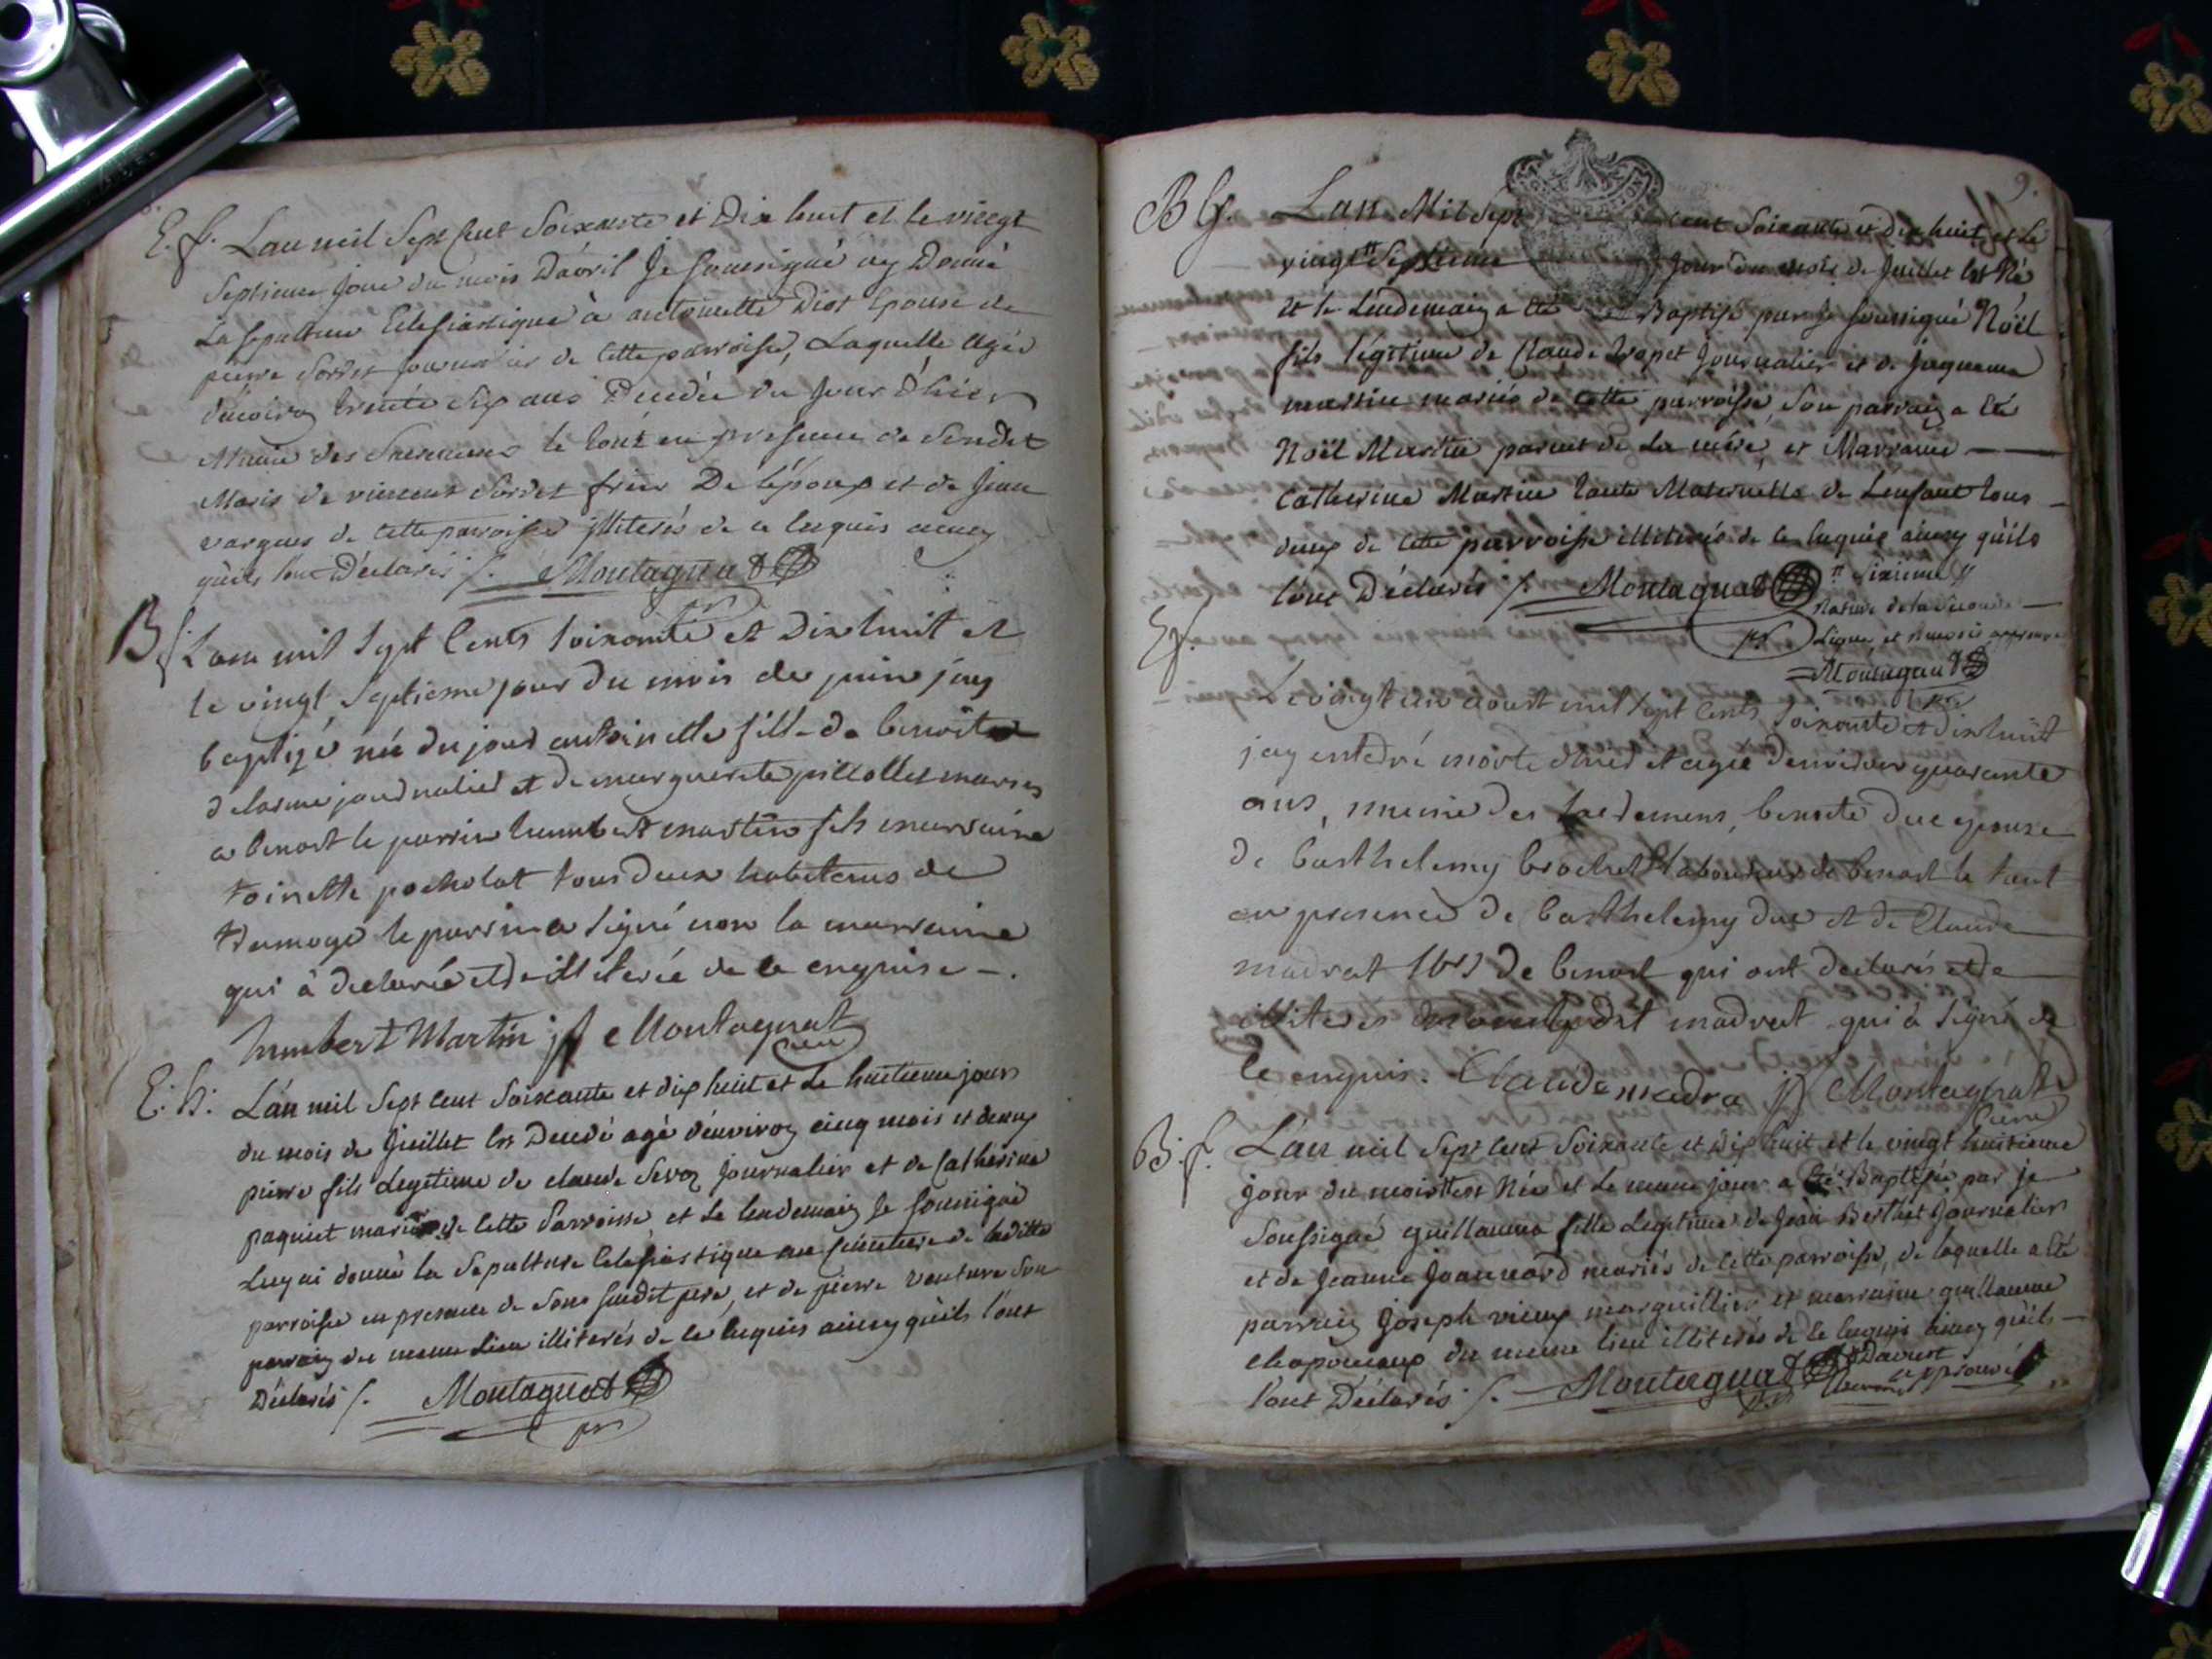 E. f. L'an mil Sept Cent Soixante et Dix huit et le vingt
Septieme Jour du mois D'avril Je soussigné ay Donné
La sepulture Eclesiastique à antoinette Diot Epouse de
pierre Sordet Journalier de cette parroisse, Laquelle agée
d'environ trente six ans Decedée du Jour D'hier
Munie des Sacremens le tout en presence de Sondit
Maris de vincent Sordet frere De l'époux et de Jean
vargues de cette parroisse illiterés de ce Enquis ainsy
qu'ils l'ont Déclarés /. Montagnat
pr
B f. L'an mil Sept Cents Soixante et Dix huit et
le vingt Septieme jour du mois de juin jay
baptizé née du jour antoinette fille de benoit
delorme journalier et de marguerite pillollet maries
a benost le parrin humbert martin fils marraine
toinette pocholat tous deux habitans de
+ Damoge le parrin a signé non la marraine
qui à declarée etre illiterée de ce enquise -.
humbert Martin jf Montagnat
Curé
E. h. L'an mil Sept Cent Soixante et dix huit et Le huitieme jour
du mois de Juillet Est Decedé agé d'environ cinq mois et demy
pierre fils Legitime de claude Sevoz Journalier et de Catherine
paquiet mariés de cette Parroisse et Le lendemain Je soussigné
Luy ai donné la Sepulture Eclesiastique au cimetiere de laditte
parroisse en presence de Sont susdit pere, et de pierre vanture Son
parrain du meme Lieu illiterés de ce Enquis ainsy qu'ils l'ont
Déclarés /. Montagnat
pr
9.
B G. L'an Mil Sept cent Soixante et Dix huit et Le
vingt " Septieme Jour du mois de Juillet Est Né
et le Lendemain a Eté Baptisé par Je soussigné Noël
fils légitime de Claude trapet Journalier et de Jaquema
martin mariés de cette parroisse, Son parrain a Eté
Noël Martin parent de La mere, et Marraine
Catherine Martin tante Maternelle de L'enfant tous
deux de cette parroisse illiterés de ce Enquis ainsy qu'ils
l'ont Déclarés /. Montagnat " Sixieme "
Rature de la Seconde
pr Ligne, et mensis approuve
Montagnat
pr
E f.
Le vingt un aoust mil Sept Cents Soixante et dix huit
jay enterré morte d'hier et agée d'environ quarante
ans, munie des Sacremens, benoite duc epouse
de barthelemy brochet laboureur de benost le tout
en presence de barthelemy duc et de Claude
madrat tous de benost qui ont declarés etre
illiteres ledit madrat qui à signé de
ce enquis. Claude madra jf Montagnat
Curé
B. f. L'an mil Sept Cent Soixante et Dix huit et le vingt huitieme
jour du mois Est Née et Le meme jour a Eté Baptisée par Je
Soussigné guillauma fille Legitime de Jean Berthet Journalier
et de Jeanne Joannard mariés de cette parroisse, de laquelle a Eté
parrain Joseph vieux marguillier et marraine guillauma
chaponeaux du meme lieu illiterés de ce Enquis ainsy qu'ils
l'ont Déclarés /. Montagnat " D'aoust
approuvé